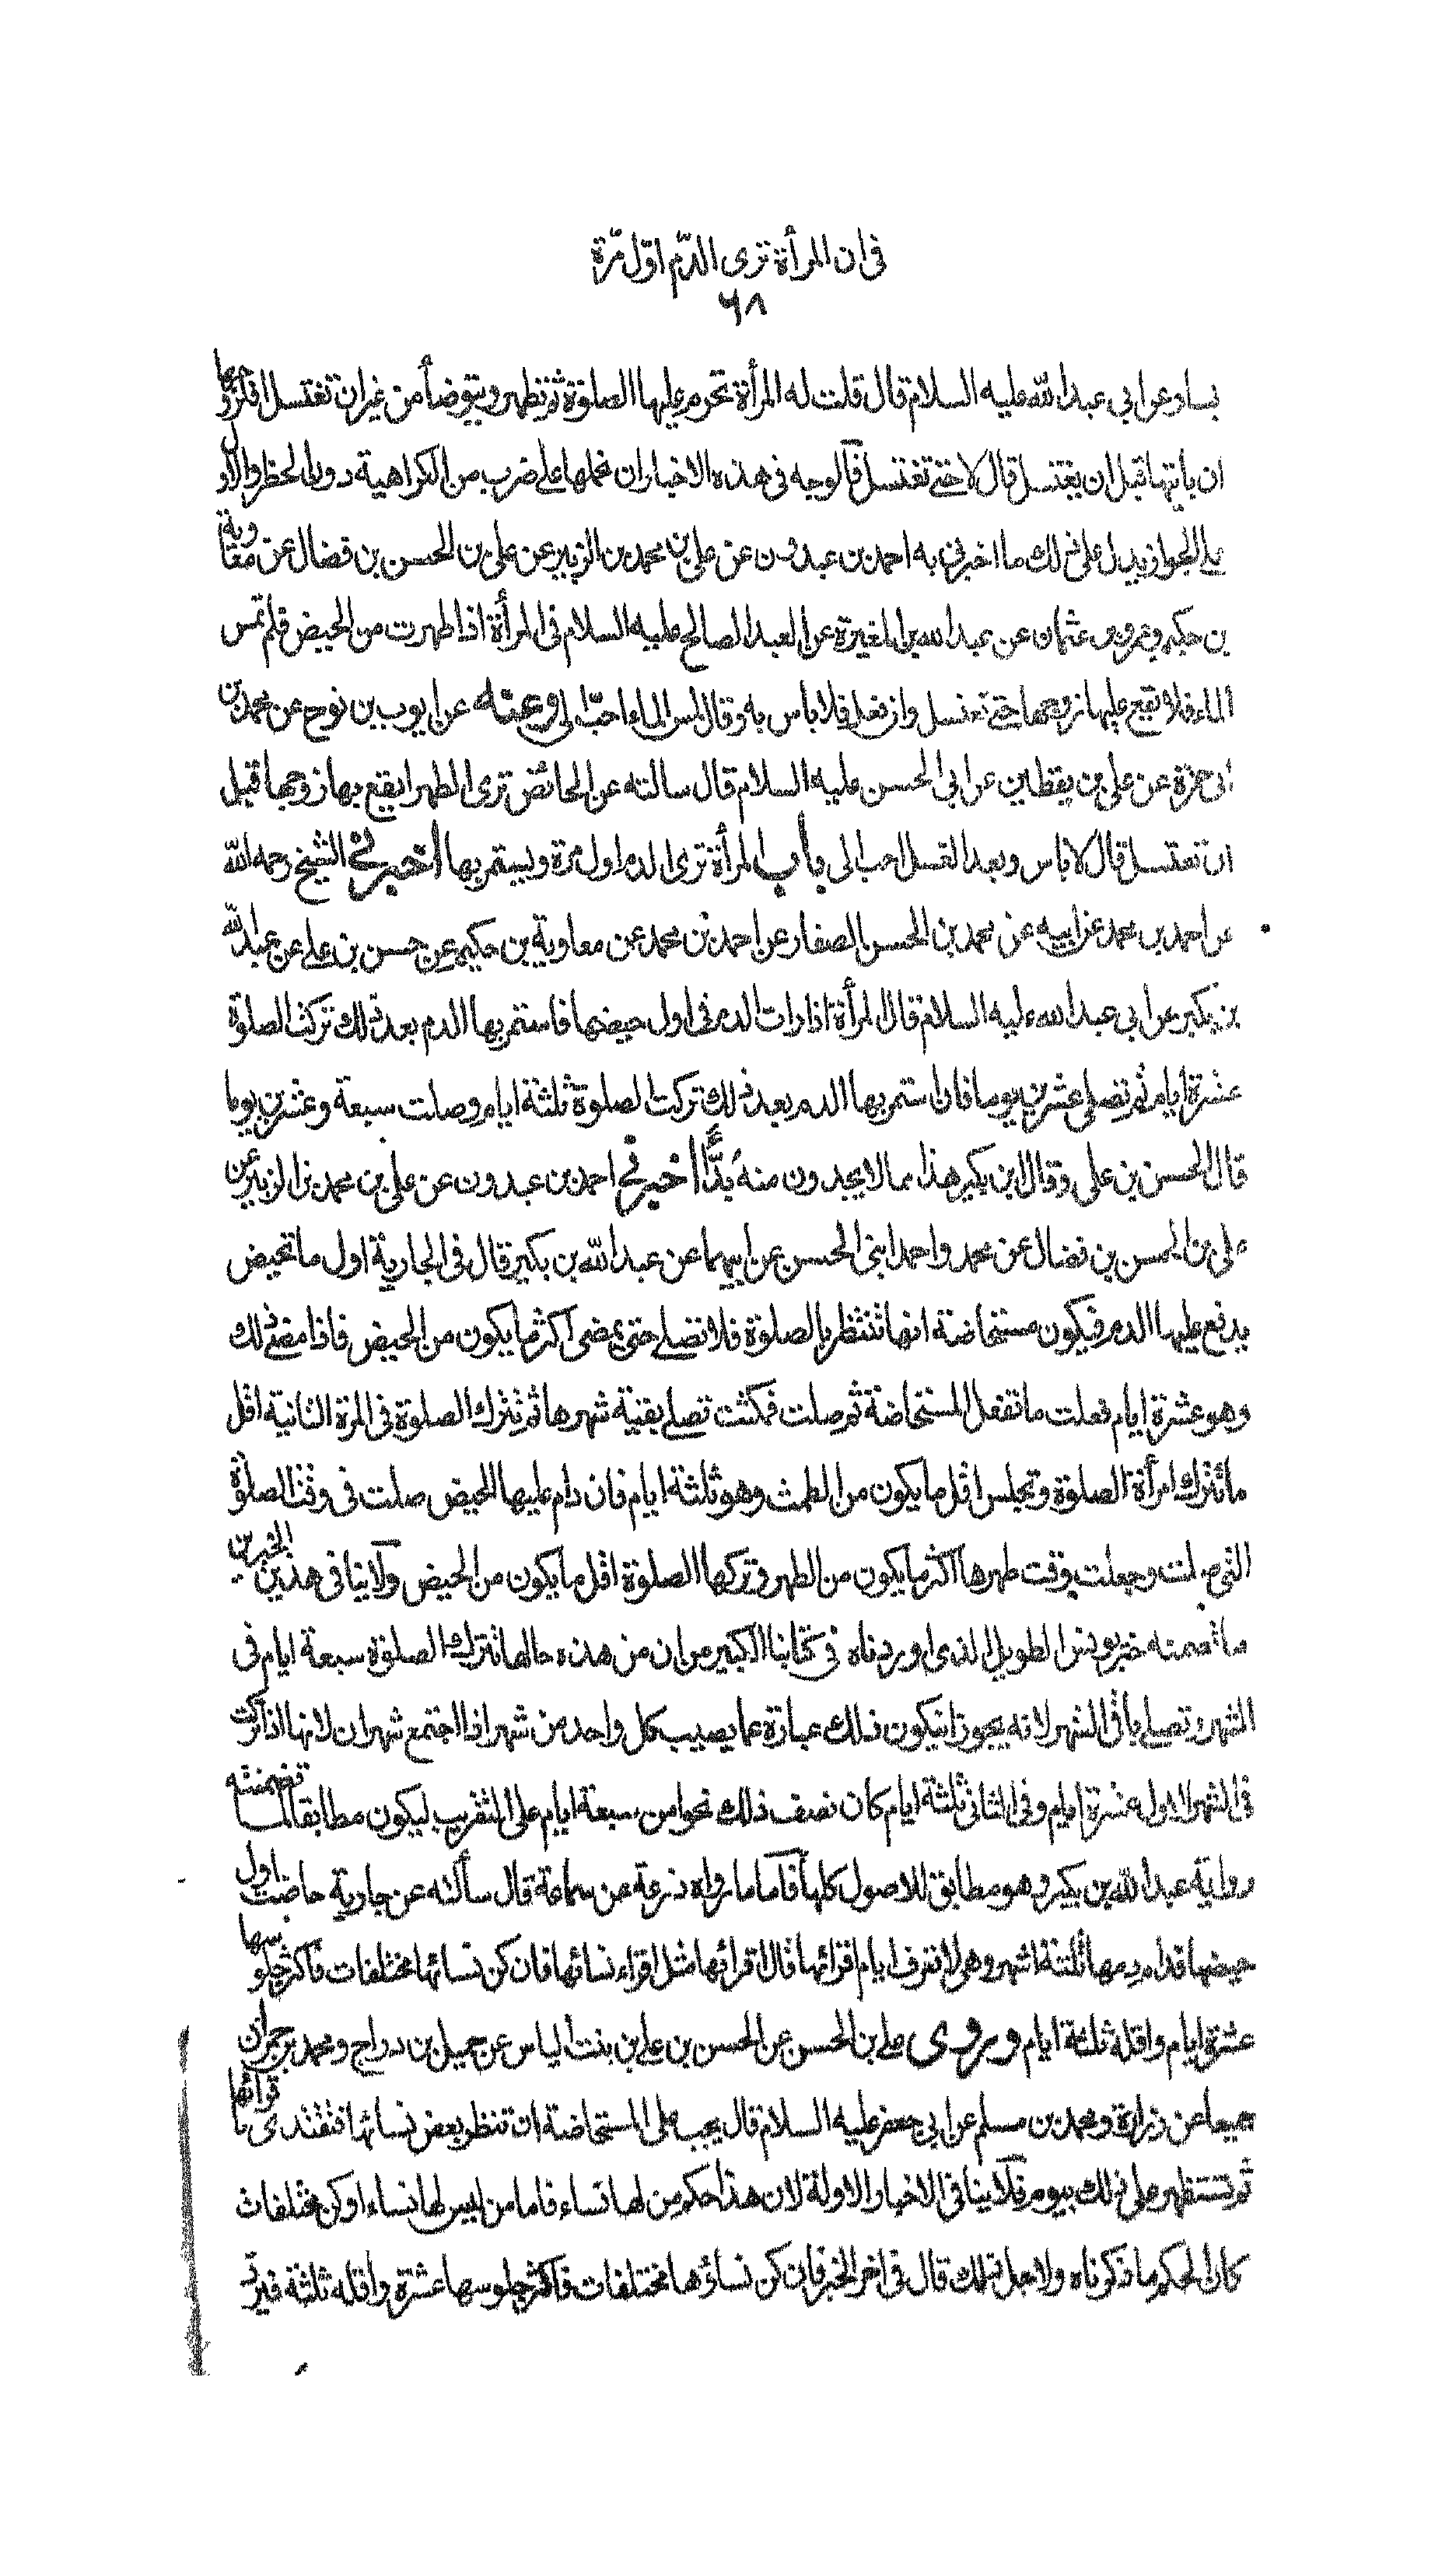 في ان المرأة ترى الدّم اوّل مرّة
٦٨
يسار عن ابي عبد الله عليه السلام قال قلت له المرأة تحرم عليها الصلوة ثم تطهر ويتوضأ من غير ان تغتسل افلزوجها
ان يأتيها قبل ان يغتسل قال لا حتى تغتسل فالوجه في هذه الاخبار ان نحملها على ضرب من الكراهية دون الحظر والاول
على الجواز يدل على ذلك ما اخبرني به احمد بن عبدون عن علي بن محمد بن الزبير عن علي بن الحسن بن فضال عن معاوية
بن حكيم وعمرو بن عثمان عن عبد الله بن المغيرة عن العبد الصالح عليه السلام في المرأة اذا طهرت من الحيض فلم تمس
الماء فلا تقيع عليها زوجها حتى تغتسل وان فعل فلا باس به وقال لمس الماء احبّ الي وعنه عن ايوب بن نوح عن محمد بن
ابي حمزة عن علي بن يقطين عن ابي الحسن عليه السلام قال سالته عن الحائض ترى الطهر ايقع بها زوجها قبل
ان تغتسل قال لا باس وبعد الغسل احب الى باب المرأة ترى الدم اول مرة ويستمر بها اخبرني الشيخ رحمه الله
عن احمد بن محمد عن ابيه عن محمد بن الحسن الصفار عن احمد بن محمد عن معاوية بن حكيم عن حسن بن علي عن عبد الله
بن بكير عن ابي عبد الله عليه السلام قال المرأة اذا رات الدم في اول حيضها فاستمر بها الدم بعد ذلك تركت الصلوة
عشرة ايام ثم تصلي عشرين يوما فان استمر بها الدم بعد ذلك تركت الصلوة ثلثة ايام وصلت سبعة وعشرين يوما
قال الحسن بن علي وقال ابن بكير هذا مما لا يجدون منه بدّا اخبرني احمد بن عبدون عن علي بن محمد بن الزبير عن
علي بن الحسن بن فضال عن محمد واحمد ابني الحسن عن ابيهما عن عبد الله بن بكير قال في الجارية اول ما تحيض
يدفع عليها الدم فيكون مستحاضة انها تنتظر بالصلوة فلا تصلي حتى يمضى اكثر ما يكون من الحيض فاذا مضى ذلك
وهو عشرة ايام فعلت ما تفعل المستحاضة ثم صلت فمكثت تصلي بقية شهرها ثم تترك الصلوة في المرة الثانية اقل
ما تترك امرأة الصلوة وتجلس اقل ما يكون من الطمث وهو ثلثة ايام فان دام عليها الحيض صلت في وقت الصلوة
التي صلت وجعلت وقت طهرها اكثر ما يكون من الطهر وتركها الصلوة اقل ما يكون من الحيض ولا ينافي هذين الخبرين
ما تضمنه خبر يونس الطويل الذي اوردناه في كتابنا الكبير من ان من هذه حالها تترك الصلوة سبعة ايام في
الشهر وتصلي باقي الشهر لانه يجوز ان يكون ذلك عبارة عما يصيب كل واحد من شهر اذا اجتمع شهران لانها اذا تركت
في الشهر الاول عشرة ايام وفي الثاني ثلثة ايام كان نصف ذلك نحوا من سبعة ايام على التقريب ليكون مطابقا لما تضمنته
رواية عبد الله بن بكير وهو مطابق للاصول كلها فاما ما رواه زرعة عن سماعة قال سألته عن جارية حاضت اول
حيضها فدام دمها ثلثة اشهر وهي لا تعرف ايام اقرائها قال اقرائها مثل اقراء نسائها فان كن نسائها مختلفات فاكثر جلوسها
عشرة ايام واقله ثلثة ايام وروى علي بن الحسن عن الحسن بن علي بن بنت الياس عن جميل بن دراج ومحمد بن حمران
جميعا عن زرارة ومحمد بن مسلم عن ابي جعفر عليه السلام قال يجب على المستحاضة ان تنظر بعض نسائها فتقتدى باقرائها
ثم تستظهر على ذلك بيوم فلا ينافي الاخبار الاولة لان هذا حكم من لها نساء فاما من ليس لها نساء او كن مختلفات
كان الحكم ما ذكرناه ولاجل ذلك قال في اخر الخبر فان كن نساؤها مختلفات فاكثر جلوسها عشرة واقله ثلثة فيرد